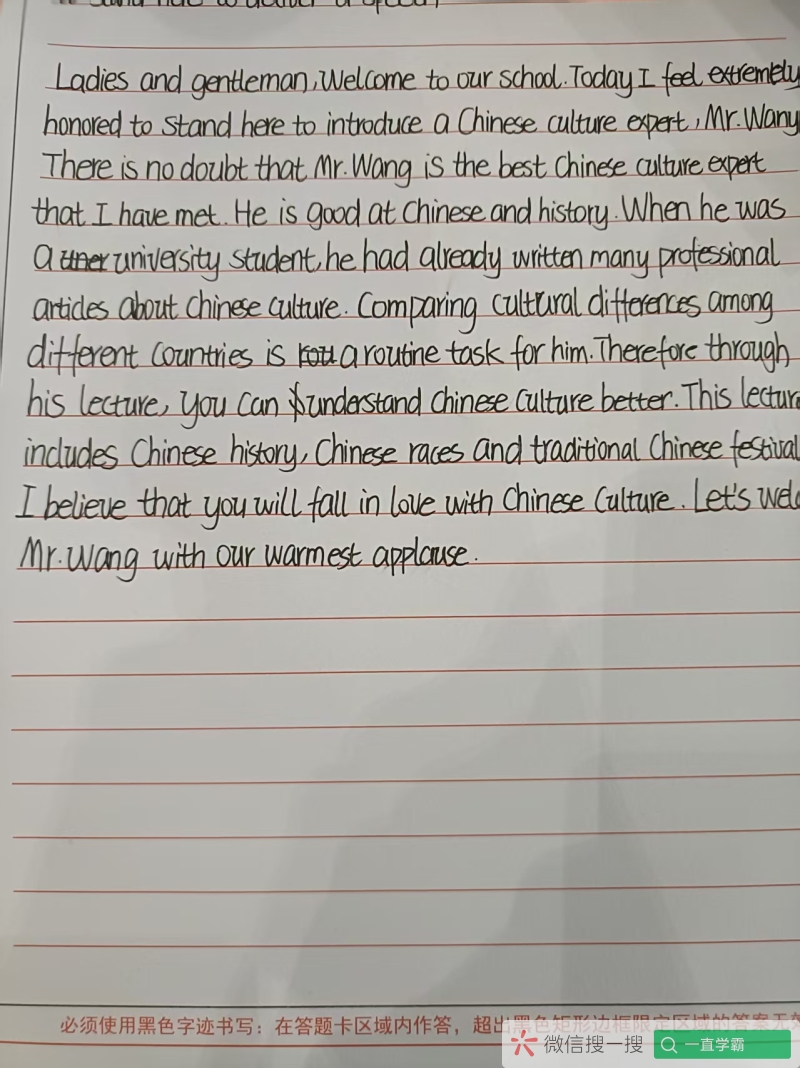 Ladies and gentleman, Welcome to our school. Today I feel extremely
honored to stand here to introduce a Chinese culture expert, Mr. Wang
There is no doubt that Mr. Wang is the best Chinese culture expert
that I have met. He is good at Chinese and history. When he was
a university student, he had already written many professional
articles about Chinese culture. Comparing cultural differences among
different countries is a routine task for him. Therefore through
his lecture, you can understand Chinese culture better. This lectur
includes Chinese history, Chinese races and traditional Chinese festival
I believe that you will fall in love with Chinese Culture. Let's welc
Mr. Wang with our warmest applause.
必须使用黑色字迹书写：在答题卡区域内作答，超出黑色矩形边框限定区域的答案无效
微信搜一搜 一直学霸